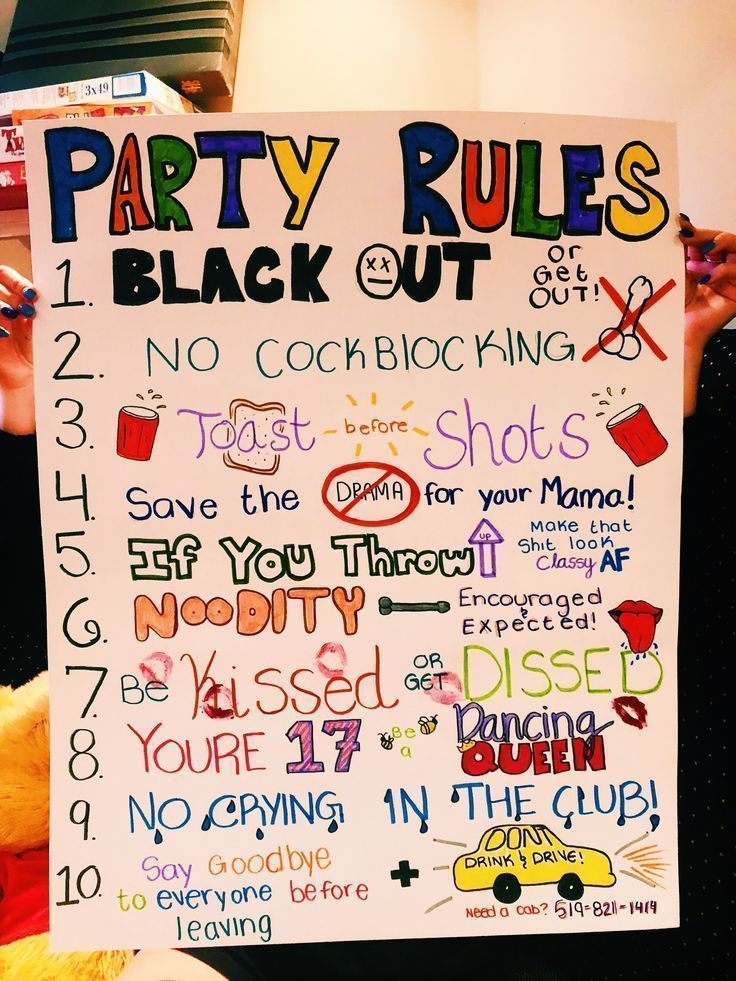 3x49
PARTY RULES
1. BLACK OUT or Get OUT!
2. NO COCKBLOCKING
3. Toast before Shots
4. Save the DRAMA for your Mama!
5. If You Throw UP Make that Shit look Classy AF
6. NOODITY Encouraged & Expected!
7. Be Kissed OR GET DISSED
8. YOURE 17 Be a Dancing QUEEN
9. NO CRYING IN THE CLUB!
10. Say Goodbye to everyone before leaving + DONT DRINK & DRIVE!
Need a cab? 519-821-1414